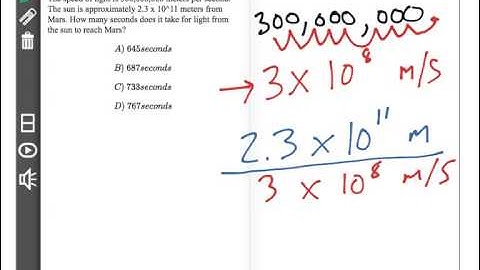 The speed of light is 300,000,000 meters per second.
The sun is approximately 2.3 x 10^11 meters from
Mars. How many seconds does it take for light from
the sun to reach Mars?
A) 645seconds
B) 687seconds
C) 733seconds
D) 767seconds
300,000,000
→ 3 x 10⁸ m/s
2.3 x 10¹¹ m
3 x 10⁸ m/s